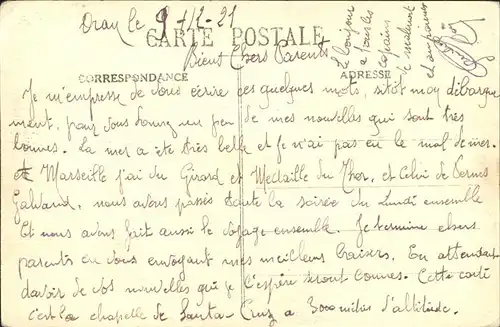 Oran le 9-12-21
CARTE POSTALE
Bien Chers Parents
CORRESPONDANCE
ADRESSE
Le bonjour
a tous les
copains
et
Je m'empresse de vous écrire ces quelques mots, sitôt moy débarque
ment, pour vous donner un peu de mes nouvelles qui sont très
bonnes. La mer a été très belle et je n'ai pas eu le mal de mer.
A Marseille j'ai vu Girard et Médaille du Thor, et celui de
Galibaud, nous avons passés toute la soirée du Lundi ensemble
Et nous avons fait aussi le voyage ensemble. Je termine chers
parents en vous envoyant mes meilleurs baisers. En attendant
d'avoir de vos nouvelles qui je l'espère seront bonnes. Cette carte
c'est la chapelle de Santa-Cruz a 300 mètres d'altitude.